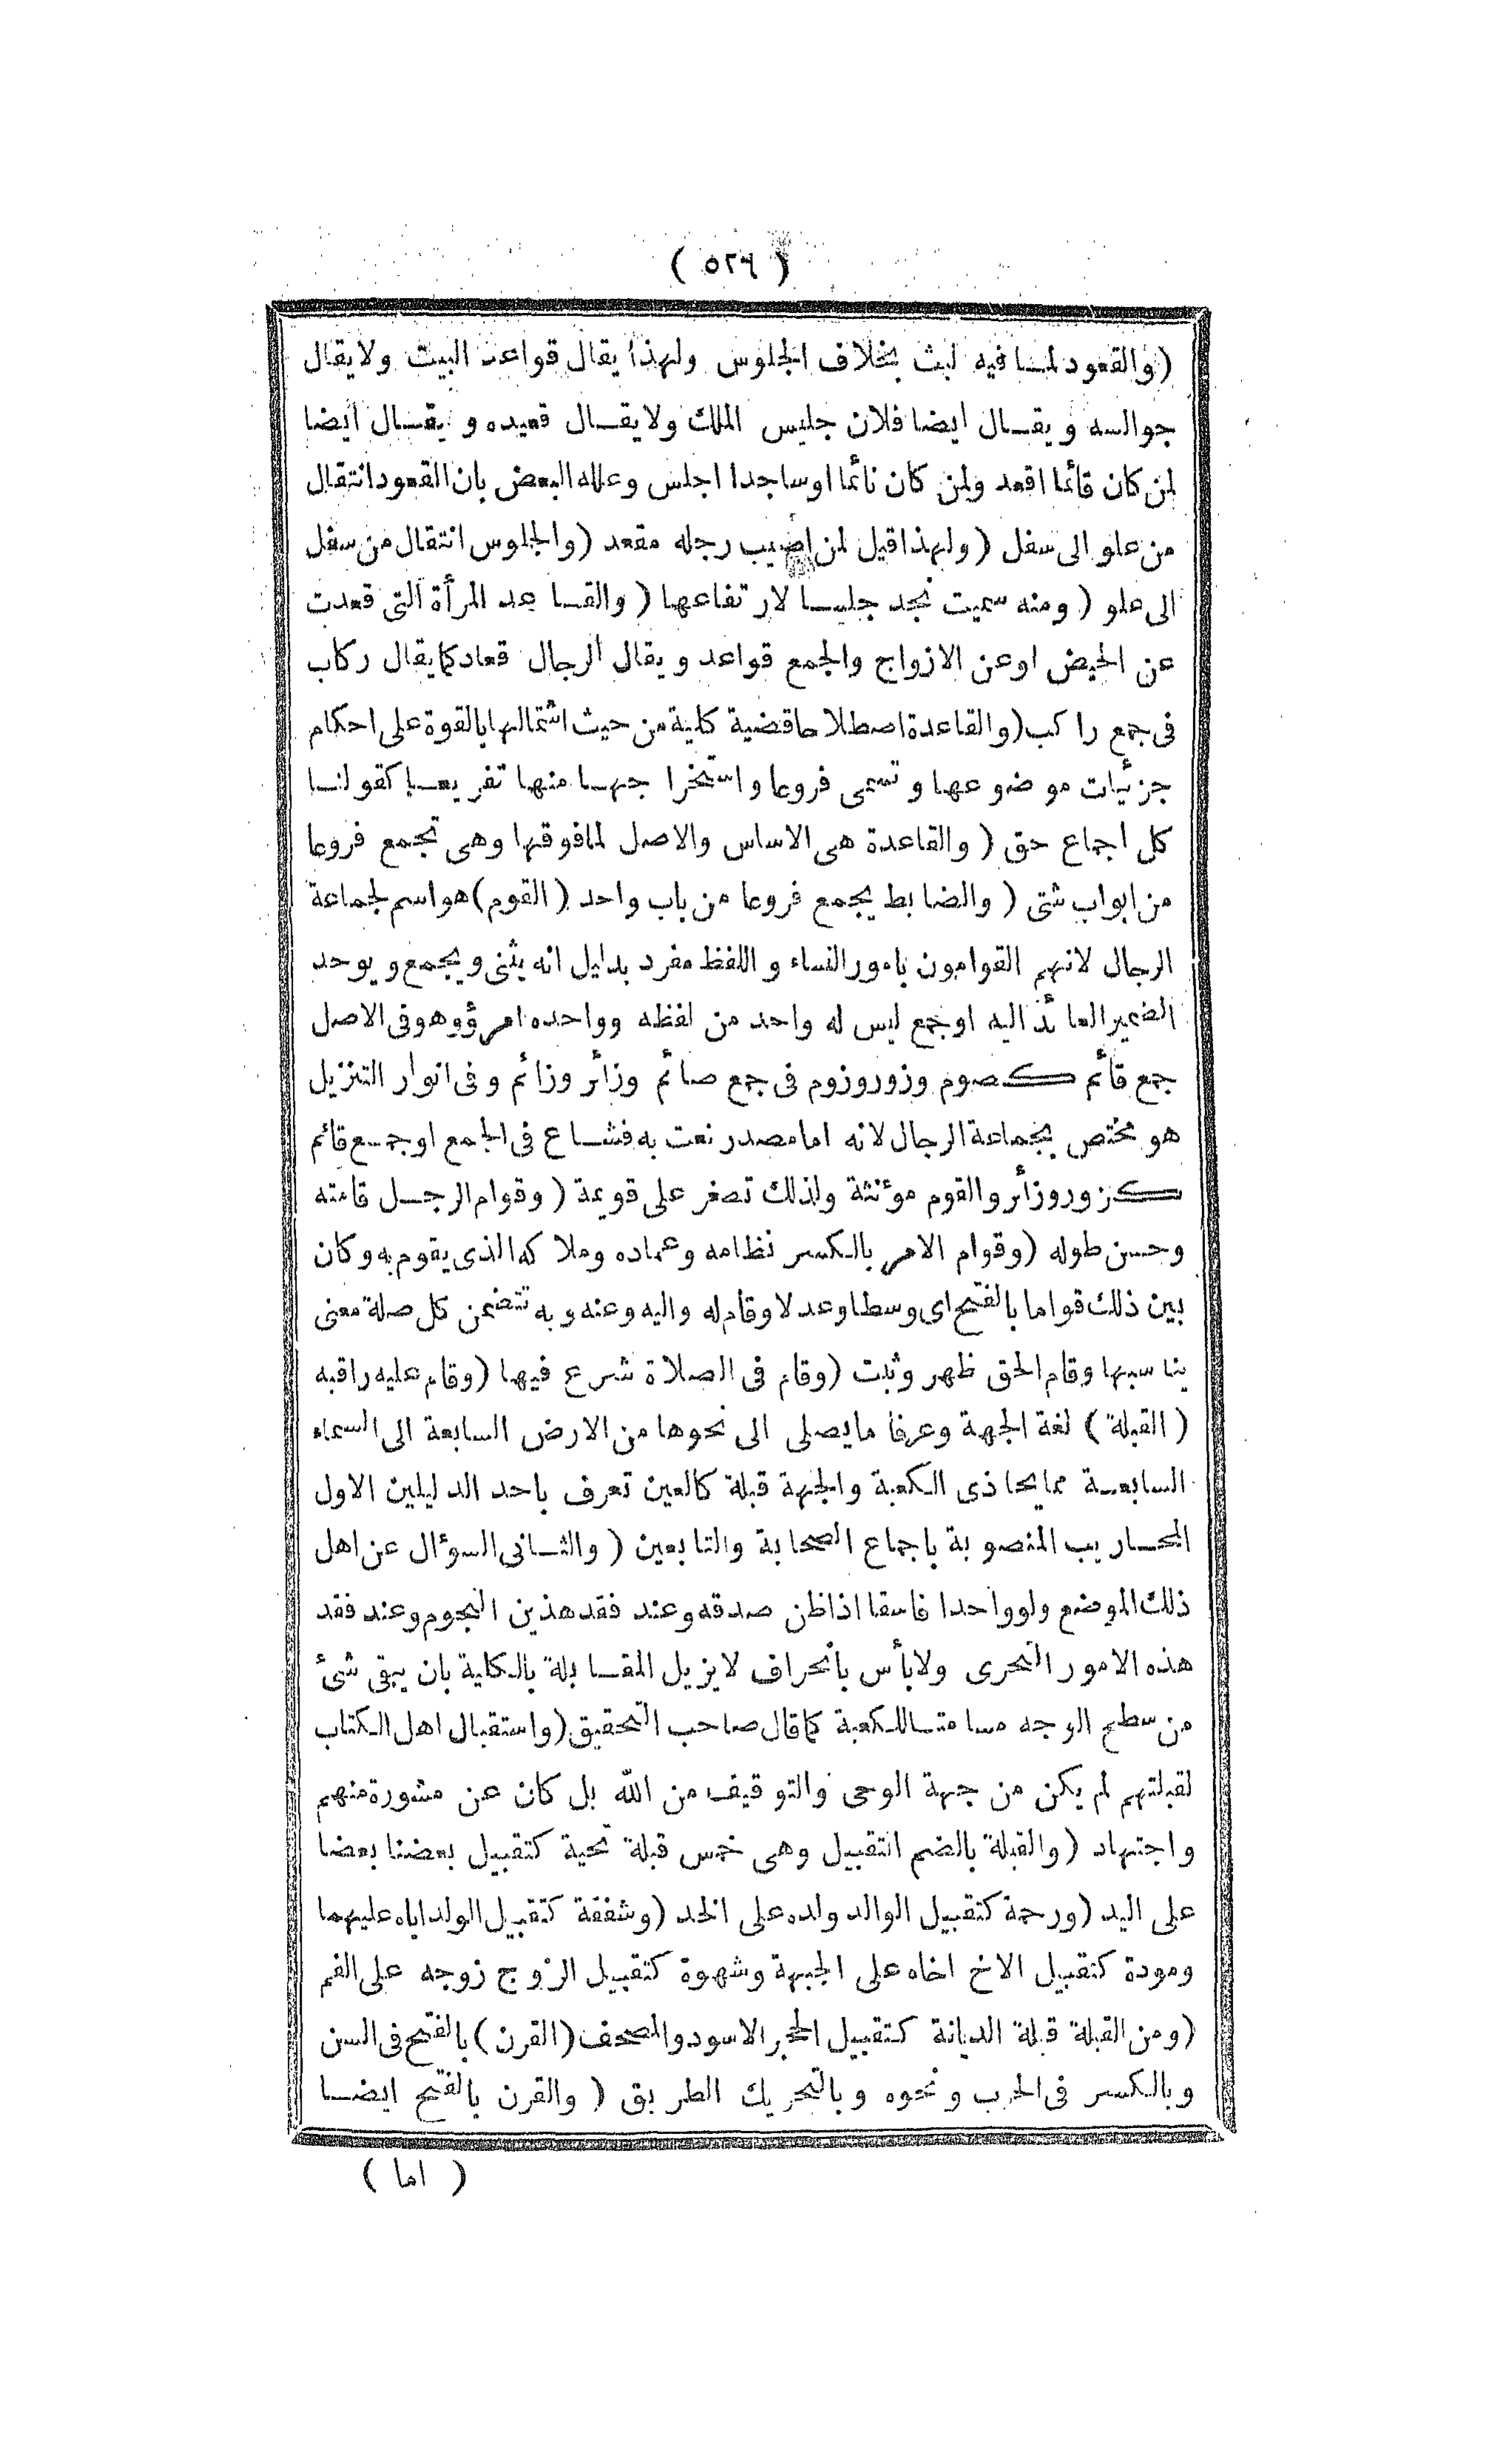 ( ٥٢٦ )
(والقعود لما فيه لبث بخلاف الجلوس ولهذا يقال قواعد البيت ولا يقال
جوالسه ويقال ايضا فلان جليس الملك ولا يقال قعيده ويقال ايضا
لمن كان قائما اقعد ولمن كان نائما او ساجدا اجلس وعلله البعض بان القعود انتقال
من علو الى سفل ( ولهذا قيل لمن اصيب رجله مقعد (والجلوس انتقال من سفل
الى علو ( ومنه سميت نجد جليسا لارتفاعها ( والقاعد المرأة التى قعدت
عن الحيض او عن الازواج والجمع قواعد ويقال الرجال قعاد كما يقال ركاب
فى جمع راكب (والقاعدة اصطلاحا قضية كلية من حيث اشتمالها بالقوة على احكام
جزئيات موضوعها وتسمى فروعا واستخراجها منها تفريعا كقولنا
كل اجماع حق ( والقاعدة هى الاساس والاصل لما فوقها وهى تجمع فروعا
من ابواب شتى ( والضابط يجمع فروعا من باب واحد (القوم) هو اسم لجماعة
الرجال لانهم القوامون بامور النساء واللفظ مفرد بدليل انه يثنى ويجمع ويوحد
الضمير العائد اليه او جمع ليس له واحد من لفظه وواحده امرؤ وهو فى الاصل
جمع قائم كصوم وزور وزوم فى جمع صائم وزائر وزائم وفى انوار التنزيل
هو مختص بجماعة الرجال لانه اما مصدر نعت به فشاع فى الجمع او جمع قائم
كزور وزائر والقوم مؤنثة ولذلك تصغر على قويمة ( وقوام الرجل قامته
وحسن طوله (وقوام الامر بالكسر نظامه وعماده وملاكه الذى يقوم به وكان
بين ذلك قواما بالفتح اى وسطا وعدلا وقام له واليه وعنه وبه تتضمن كل صلة معنى
يناسبها وقام الحق ظهر وثبت (وقام فى الصلاة شرع فيها (وقام عليه راقبه
( القبلة ) لغة الجهة وعرفا ما يصلى الى نحوها من الارض السابعة الى السماء
السابعة مما يحاذى الكعبة والجهة قبلة كالعين تعرف باحد الدليلين الاول
المحاريب المنصوبة باجماع الصحابة والتابعين ( والثانى السؤال عن اهل
ذلك الموضع ولو واحدا فاسقا اذا ظن صدقه وعند فقد هذين النجوم وعند فقد
هذه الامور التحرى ولا بأس بانحراف لا يزيل المقابلة بالكلية بان يبقى شئ
من سطح الوجه مسامتا للكعبة كما قال صاحب التحقيق (واستقبال اهل الكتاب
لقبلتهم لم يكن من جهة الوحى والتوقيف من الله بل كان عن مشورة منهم
واجتهاد ( والقبلة بالضم التقبيل وهى خمس قبلة تحية كتقبيل بعضنا بعضا
على اليد (ورحمة كتقبيل الوالد ولده على الخد (وشفقة كتقبيل الولد اباه عليهما
ومودة كتقبيل الاخ اخاه على الجبهة وشهوة كتقبيل الزوج زوجه على الفم
(ومن القبلة قبلة الديانة كتقبيل الحجر الاسود والمصحف (القرن) بالفتح فى السن
وبالكسر فى الحرب ونحوه وبالتحريك الطريق ( والقرن بالفتح ايضا
( اما )